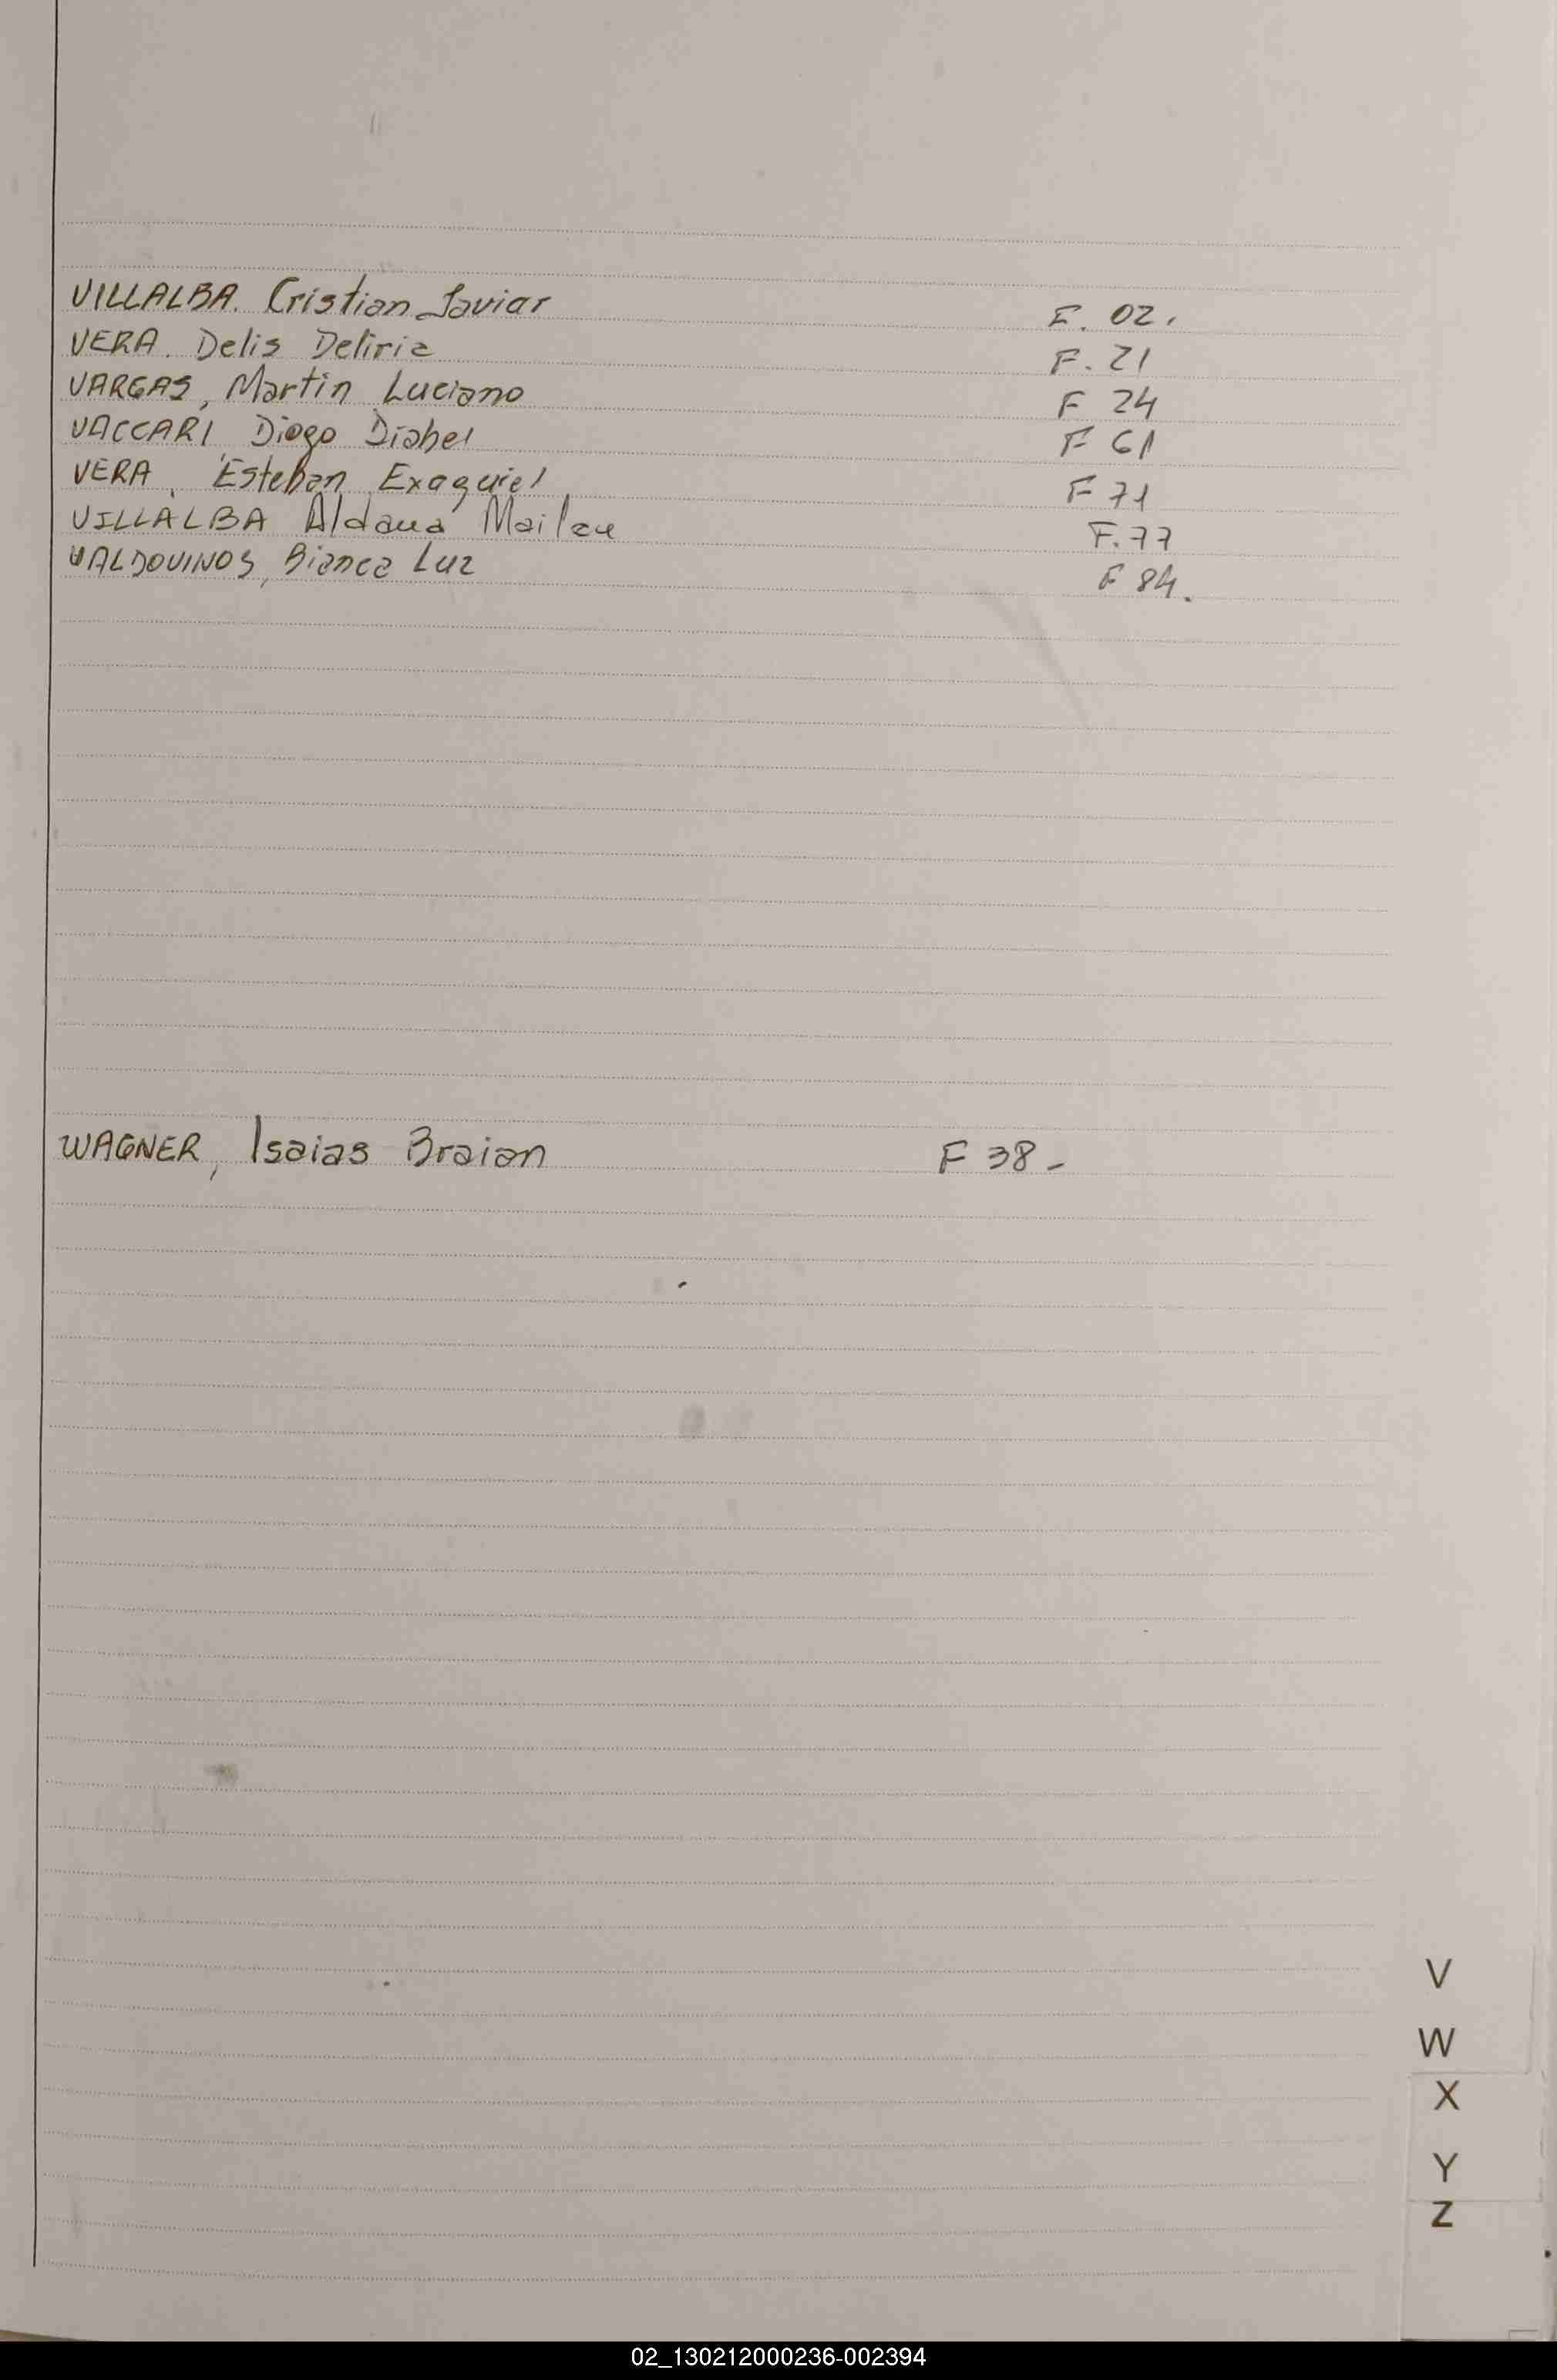 VILLALBA. Cristian Javier F. 02.
VERA. Delis Deliria F. 21
VARGAS, Martin Luciano F 24
VACCARI Diego F 61
VERA, Esteban Exequiel F 71
VILLALBA Aldana Mailen F. 77
VALDOVINOS, Bianca Luz F 84.
WAGNER, Isaias Braian F 38-
V
W
X
Y
Z
02_130212000236-002394